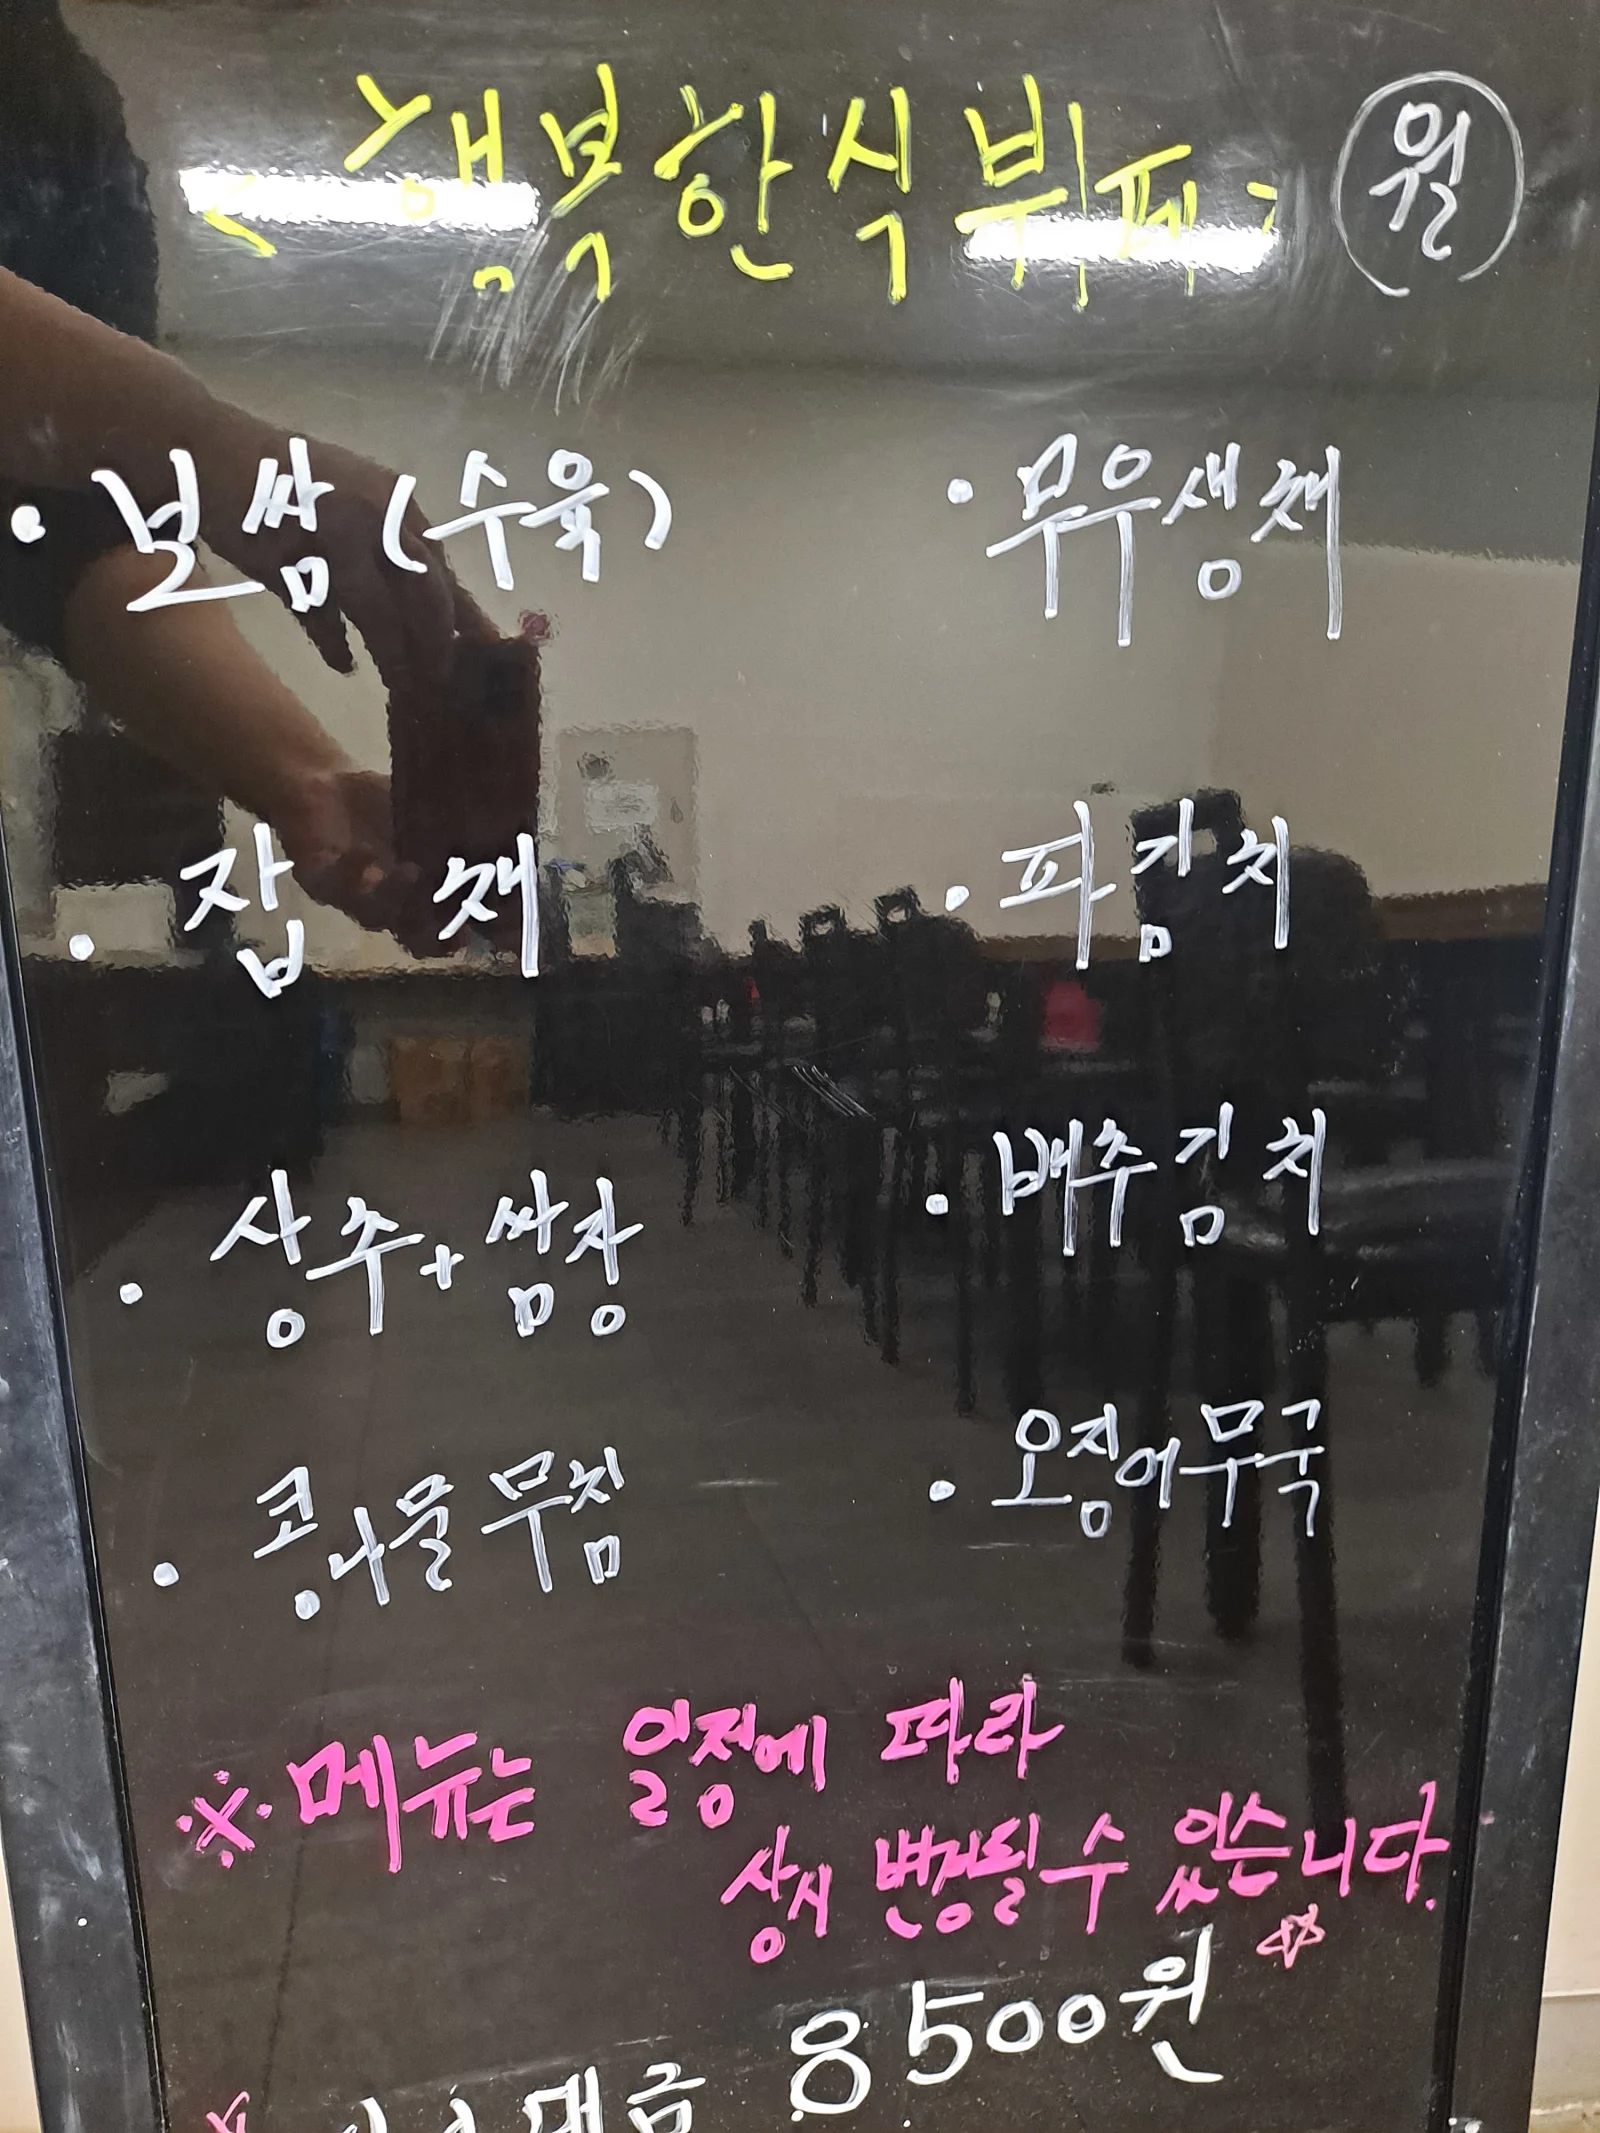 <행복한식뷔페> 월
· 보쌈(수육)
· 잡채
· 상추+쌈장
· 콩나물무침
· 무우생채
· 파김치
· 배추김치
· 오징어무국
※메뉴는 일정에 따라
상시 변경될수있습니다.
대금 8500원